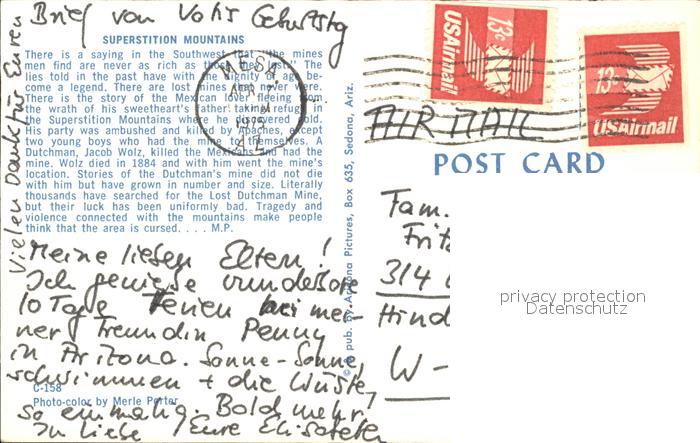 Vielen Dank für Euren
Brief von Vatis Geburtstag
SUPERSTITION MOUNTAINS
There is a saying in the Southwest that "the mines
men find are never as rich as those they lost." The
lies told in the past have with the dignity of age be-
come a legend. There are lost mines that never were.
There is the story of the Mexican lover fleeing from
the wrath of his sweetheart's father taking refuge in
the Superstition Mountains where he discovered gold.
His party was ambushed and killed by Apaches, except
two young boys who had the mine to themselves. A
Dutchman, Jacob Wolz, killed the Mexicans and had the
mine. Wolz died in 1884 and with him went the mine's
location. Stories of the Dutchman's mine did not die
with him but have grown in number and size. Literally
thousands have searched for the Lost Dutchman Mine,
but their luck has been uniformly bad. Tragedy and
violence connected with the mountains make people
think that the area is cursed. . . . M.P.
Meine lieben Eltern!
Ich genieße wunderbare
10 Tage Ferien bei mei-
ner Freundin Penny
in Arizona. Sonne-Sonne,
schwimmen + die Wüste,
so einmalig. Bald mehr!
In Liebe Eure Elisabeth
C-158
Photo-color by Merle Porter
pub. by Arizona Pictures, Box 635, Sedona, Ariz.
MESA
APR
1975
AZ
13c
USAirmail
13c
USAirmail
AIR MAIL
POST CARD
Fam.
Fritz
314
Hind
W-
privacy protection
Datenschutz